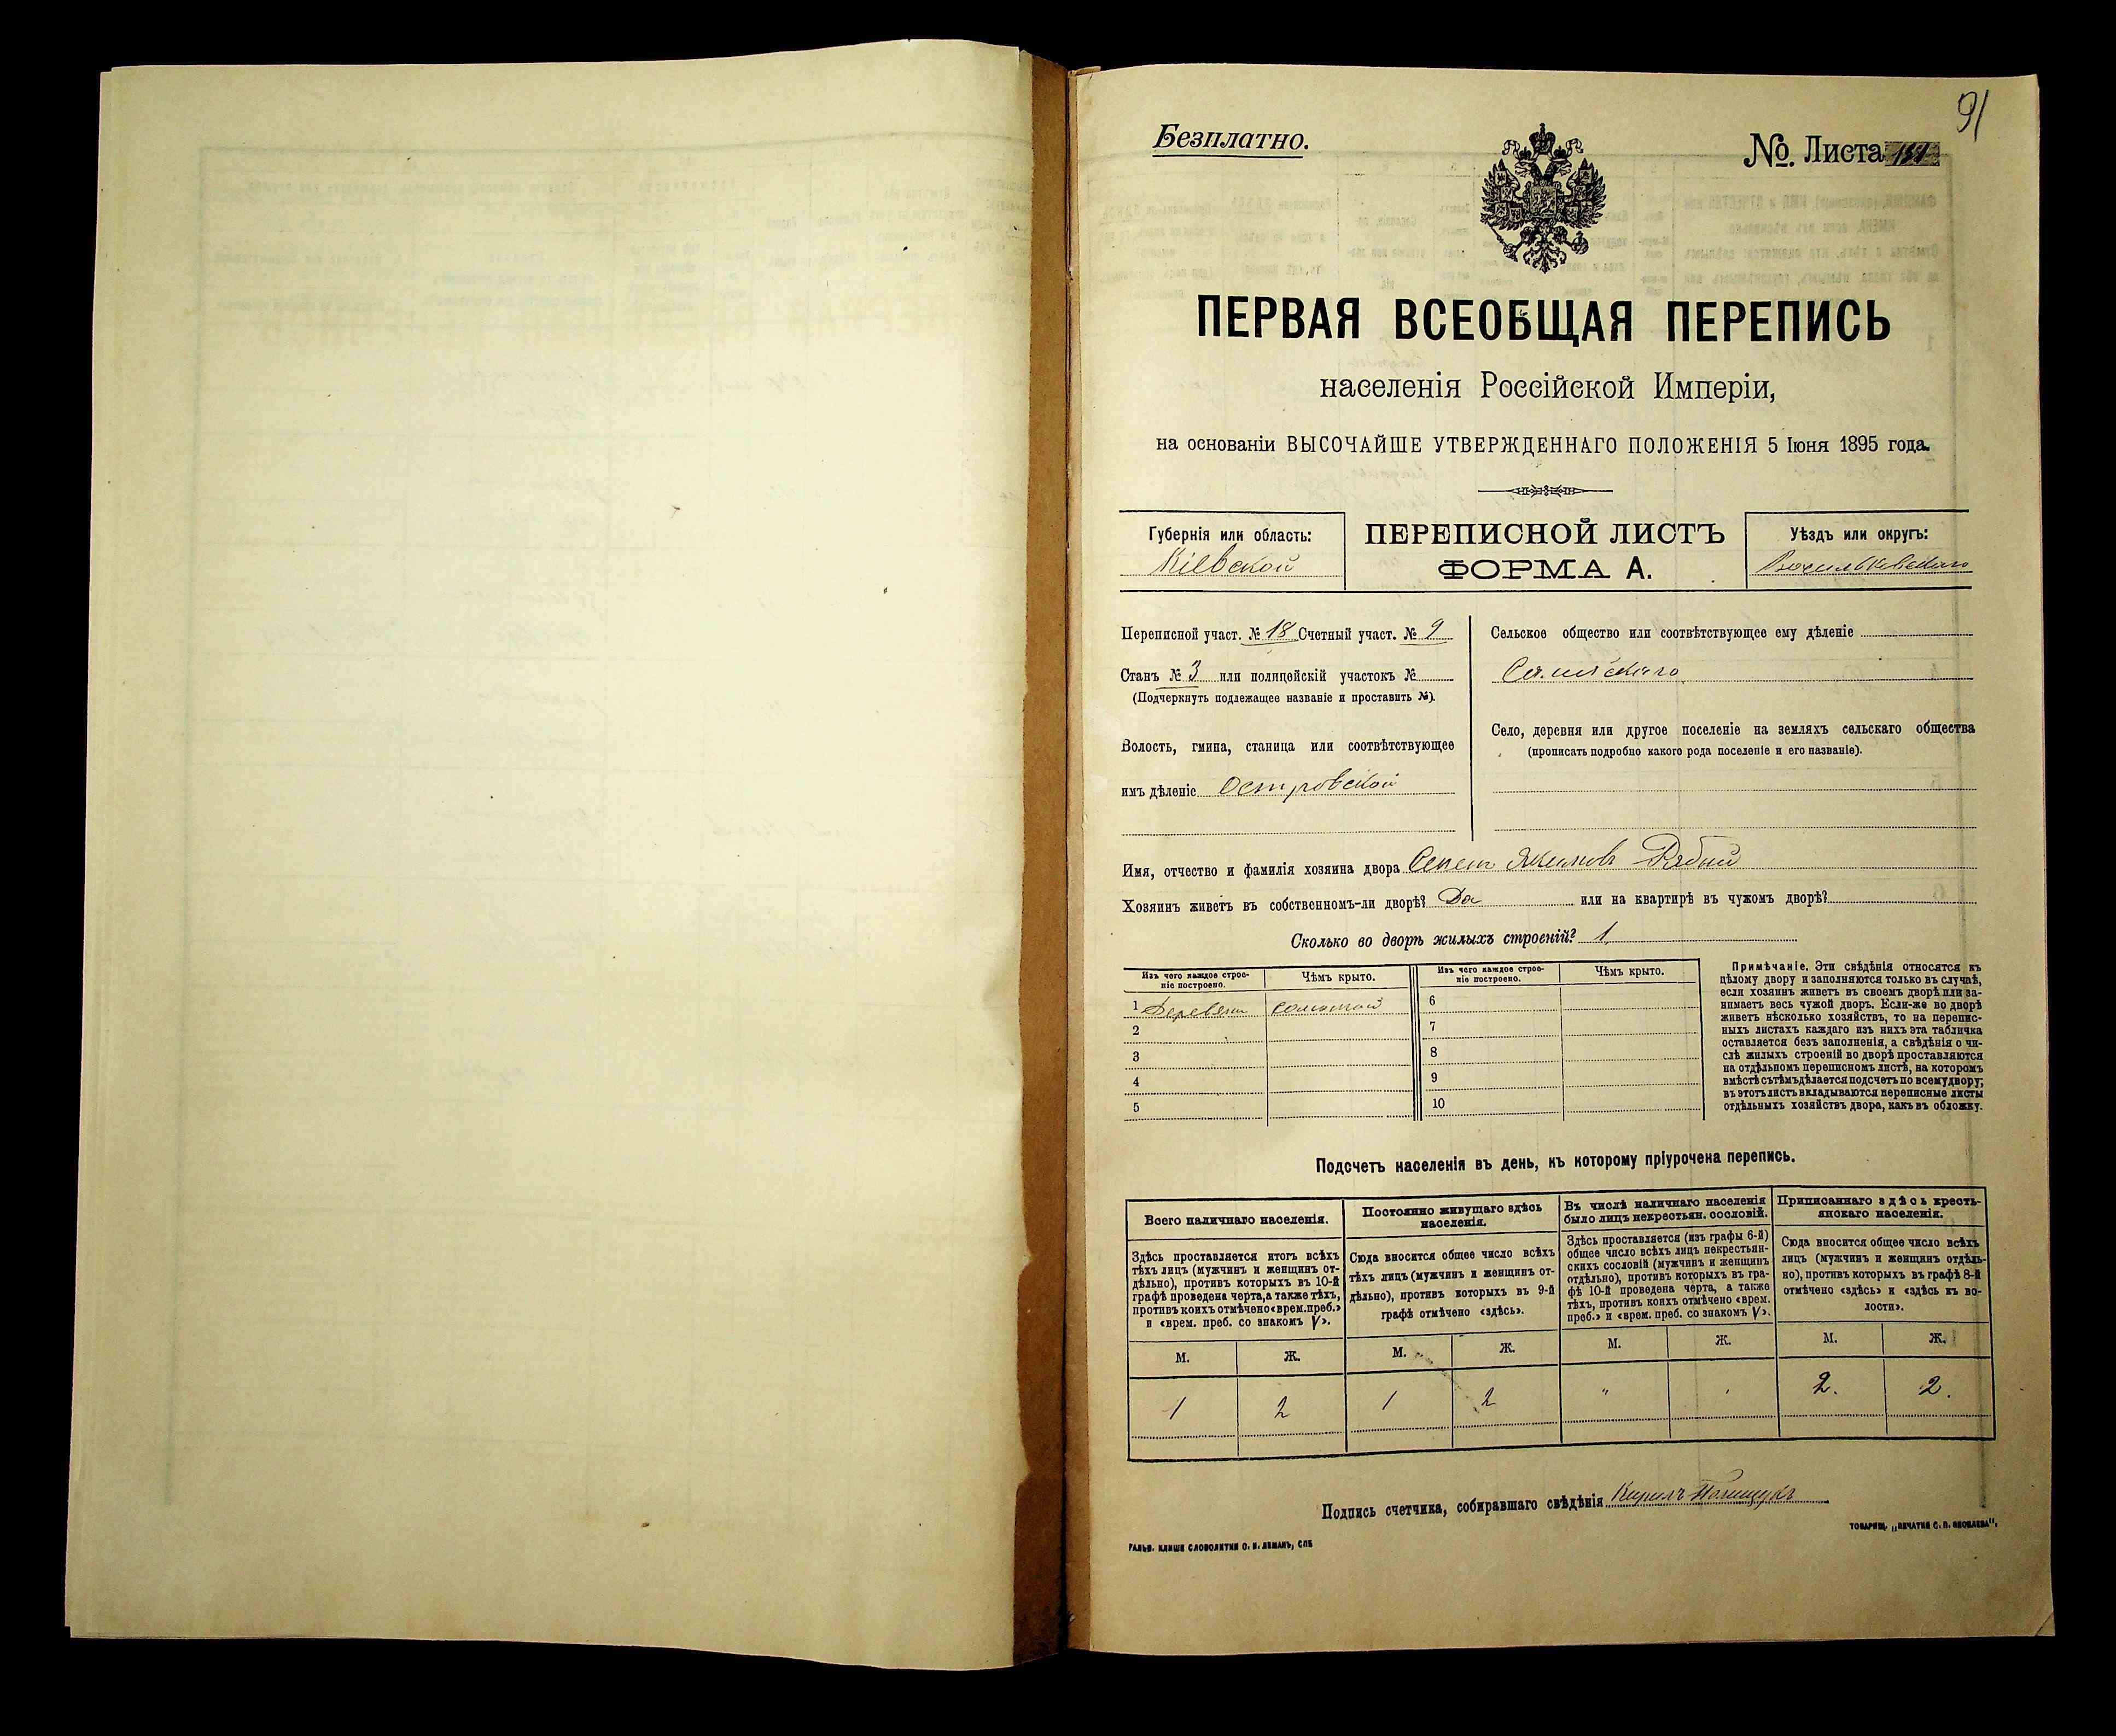 91
Безплатно.
№. Листа
ПЕРВАЯ ВСЕОБЩАЯ ПЕРЕПИСЬ
населенія Россійской Имперіи,
на основаніи ВЫСОЧАЙШЕ УТВЕРЖДЕННАГО ПОЛОЖЕНІЯ 5 Іюня 1895 года.
Губернія или область:
Кіевской
ПЕРЕПИСНОЙ ЛИСТЪ
ФОРМА А.
Уѣздъ или округъ:
Васильковскаго
Переписной участ. № 18 Счетный участ. № 9
Станъ № 3 или полицейскій участокъ №
(Подчеркнуть подлежащее названіе и проставить №).
Волость, гмина, станица или соотвѣтствующее
имъ дѣленіе Островской
Сельское общество или соотвѣтствующее ему дѣленіе
Село, деревня или другое поселеніе на земляхъ сельскаго общества
(прописать подробно какого рода поселеніе и его названіе).
Имя, отчество и фамилія хозяина двора Якимовъ Рябый
Хозяинъ живетъ въ собственномъ-ли дворѣ? Да или на квартирѣ въ чужомъ дворѣ?
Сколько во дворѣ жилыхъ строеній? 1
Изъ чего каждое строе-
ніе построено.
Чѣмъ крыто.
1 Деревян соломой
2
3
4
5
Изъ чего каждое строе-
ніе построено.
Чѣмъ крыто.
6
7
8
9
10
Примѣчаніе. Эти свѣдѣнія относятся къ
цѣлому двору и заполняются только въ случаѣ,
если хозяинъ живетъ въ своемъ дворѣ или за-
нимаетъ весь чужой дворъ. Если-же во дворѣ
живетъ нѣсколько хозяйствъ, то на перепис-
ныхъ листахъ каждаго изъ нихъ эта табличка
оставляется безъ заполненія, а свѣдѣнія о чи-
слѣ жилыхъ строеній во дворѣ проставляются
на отдѣльномъ переписномъ листѣ, на которомъ
вмѣстѣ съ тѣмъ дѣлается подсчетъ по всему двору;
въ этотъ листъ вкладываются переписные листы
отдѣльныхъ хозяйствъ двора, какъ въ обложку.
Подсчетъ населенія въ день, къ которому пріурочена перепись.
Всего наличнаго населенія.
Здѣсь проставляется итогъ всѣхъ
тѣхъ лицъ (мужчинъ и женщинъ от-
дѣльно), противъ которыхъ въ 10-й
графѣ проведена черта, а также тѣхъ,
противъ коихъ отмѣчено «врем. преб.»
и «врем. преб. со знакомъ V».
М. Ж.
1 2
Постоянно живущаго здѣсь
населенія.
Сюда вносится общее число всѣхъ
тѣхъ лицъ (мужчинъ и женщинъ от-
дѣльно), противъ которыхъ въ 9-й
графѣ отмѣчено «здѣсь».
М. Ж.
1 2
Въ числѣ наличнаго населенія
было лицъ некрестьян. сословій.
Здѣсь проставляется (изъ графы 6-й)
общее число всѣхъ лицъ некрестьян-
скихъ сословій (мужчинъ и женщинъ
отдѣльно), противъ которыхъ въ гра-
фѣ 10-й проведена черта, а также
тѣхъ, противъ коихъ отмѣчено «врем.
преб.» и «врем. преб. со знакомъ V».
М. Ж.
Приписаннаго здѣсь кресть-
янскаго населенія.
Сюда вносится общее число всѣхъ
лицъ (мужчинъ и женщинъ отдѣль-
но), противъ которыхъ въ графѣ 8-й
отмѣчено «здѣсь» и «здѣсь въ во-
лости».
М. Ж.
2. 2.
Подпись счетчика, собиравшаго свѣдѣнія Кирилъ
ГАЛЬВ. КЛИШЕ СЛОВОЛИТНИ О. И. ЛЕМАНЪ, СПБ
ТОВАРИЩ. „ПЕЧАТНЯ С. П. ЯКОВЛЕВА“.